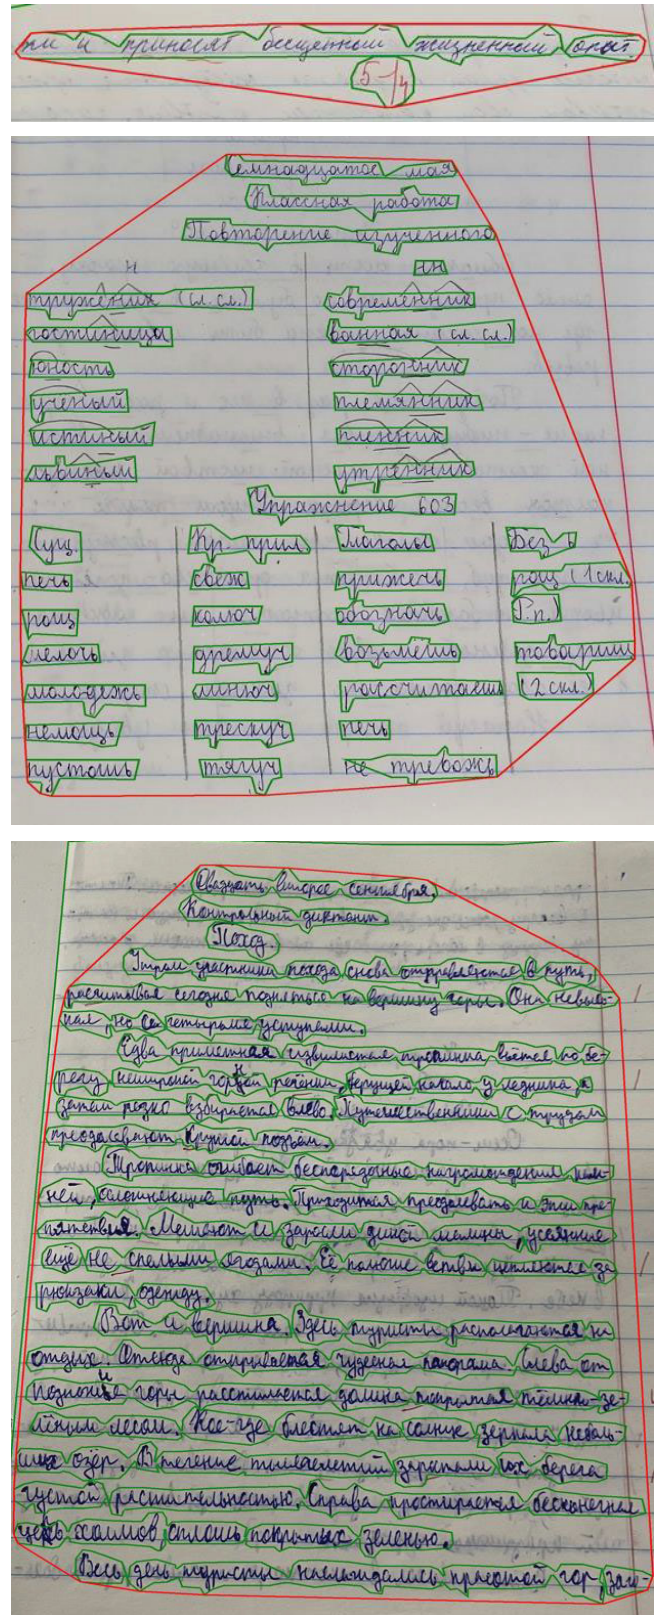 ти и приносят бесценный жизненный опыт.
5/4
Семнадцатое мая
Классная работа
Повторение изученного
н нн
труженик (сл. сл.) современник
гостиница ванная (сл. сл.)
юность сторонник
ученый племянник
истиный пленник
львиный утренник
Упражнение 603
Сущ. Кр. прил Глаголы Без ь
печь свеж прижечь рощ (1 скл.
рощ колюч обозначь Р.п.)
мелочь дремуч возьмёшь товарищ
молодежь линюч рассчитаешь (2 скл.)
немощь трескуч печь
пустошь тягуч не тревожь
Двадцать второе сентября.
Контрольный диктант.
Поход.
Утром участники похода снова отправляются в путь,
расчитывая сегодня подняться на вершину горы. Она невысо-
кая, но с четырьмя уступами.
Едва приметная извилистая тропинка вьётся по бе-
регу неширокой горной речонки, берущей начало у ледника, а
затем резко взбирается влево. Путешественники с трудом
преодолевают крутой подъём.
Тропинка огибает беспорядочные нагромождения кам-
ней, осложняющие путь. Приходится преодолевать и эти пре-
пятствия. Мешают и заросли дикой малины, усеянные
ещё не спелыми ягодами. Её колючие ветви цепляются за
рюкзаки, одежду.
Вот и вершина. Здесь туристы располагаются на
отдых. Отсюда открывается чудесная панорама. Слева от
подножия горы расстилается долина покрытая тёмно-зе-
лёным лесом. Кое-где блестят на солнце зеркала неболь-
ших озёр. В течение тысячелетий зарастали их берега
густой растительностью. Справа простирается бесконечная
цепь холмов, сплошь покрытых зеленью.
Весь день туристы наслаждались красотой гор, заго-